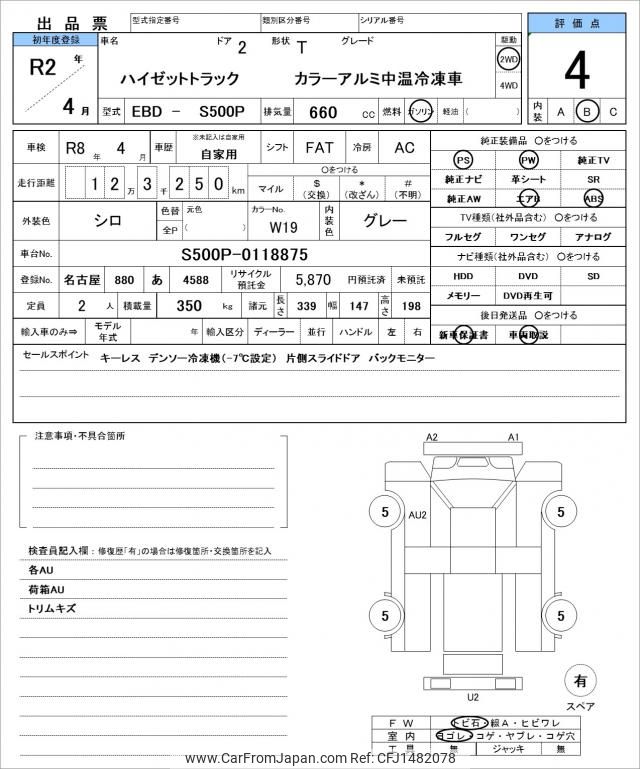 出品票
型式指定番号
類別区分番号
シリアル番号
評価点
初年度登録
R2 年
4 月
車名
ドア 2 形状 T グレード
ハイゼットトラック カラーアルミ中温冷凍車
駆動
2WD
4WD
4
型式 EBD - S500P 排気量 660 cc 燃料 ガソリン ・ 軽油 ( )
内装 A B C
車検 R8 年 4 月 車歴 ※未記入は自家用 自家用 シフト FAT 冷房 AC
走行距離 12万3千250km 〇をつける
マイル $(交換) *(改ざん) #(不明)
外装色 シロ 色替 元色 全P ( ) カラーNo. W19 内装色 グレー
車台No. S500P-0118875
登録No. 名古屋 880 あ 4588 リサイクル預託金 5,870 円預託済 未預託
定員 2 人 積載量 350 kg 諸元 長さ 339 幅 147 高さ 198
輸入車のみ⇒ モデル年式 年 輸入区分 ディーラー 並行 ハンドル 左 右
純正装備品 〇をつける
PS PW 純正TV
純正ナビ 革シート SR
純正AW エアB ABS
TV種類(社外品含む) 〇をつける
フルセグ ワンセグ アナログ
ナビ種類(社外品含む) 〇をつける
HDD DVD SD
メモリー DVD再生可
後日発送品 〇をつける
新車保証書 車両取説
セールスポイント キーレス デンソー冷凍機(-7℃設定) 片側スライドドア バックモニター
注意事項・不具合箇所
検査員記入欄：修復歴「有」の場合は修復箇所・交換箇所を記入
各AU
荷箱AU
トリムキズ
A2 A1
5 AU2 5
5 5
U2
有
スペア
FW トビ石・線A・ヒビワレ
室内 ヨゴレ・コゲ・ヤブレ・コゲ穴
工具 無 ジャッキ 無
www.CarFromJapan.com Ref: CFJ1482078